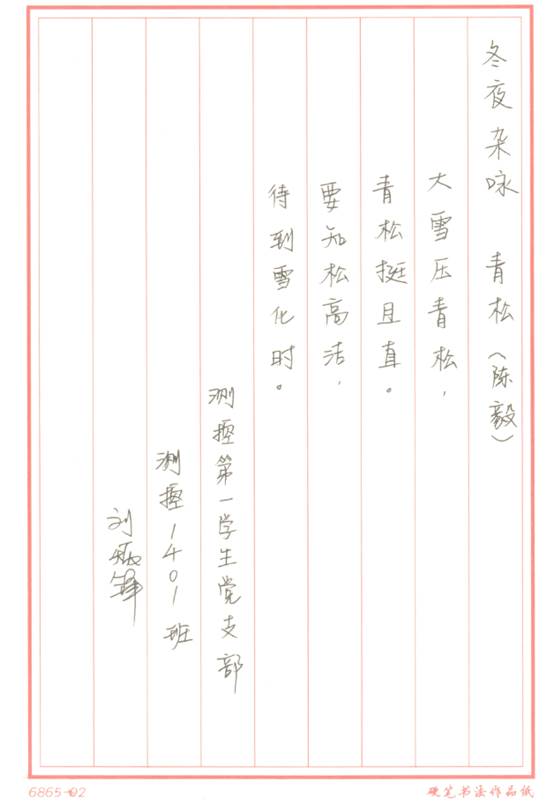 冬夜杂咏 青松（陈毅）
大雪压青松，
青松挺且直。
要知松高洁，
待到雪化时。
测控第一学生党支部
测控1401班
刘
6865-02
硬笔书法作品纸